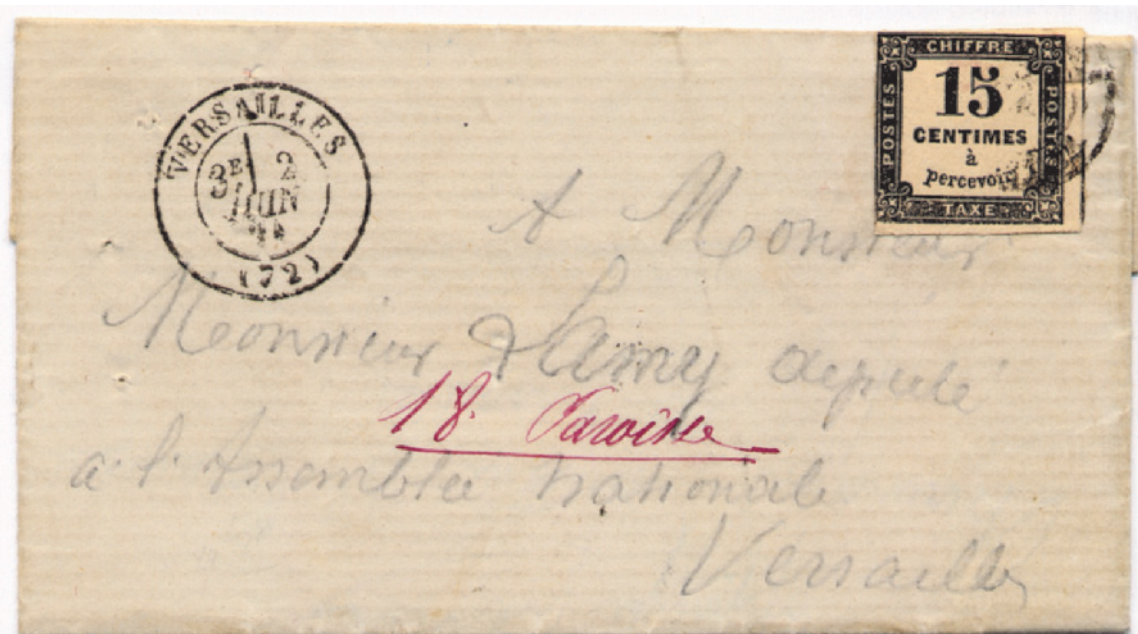 VERSAILLES
3E 2
JUIN
(72)
CHIFFRE
POSTES
15
CENTIMES
à
percevoir
POSTES
TAXE
A Monsieur
Monsieur Lamy député
18.
a l'Assemblée nationale
Versailles